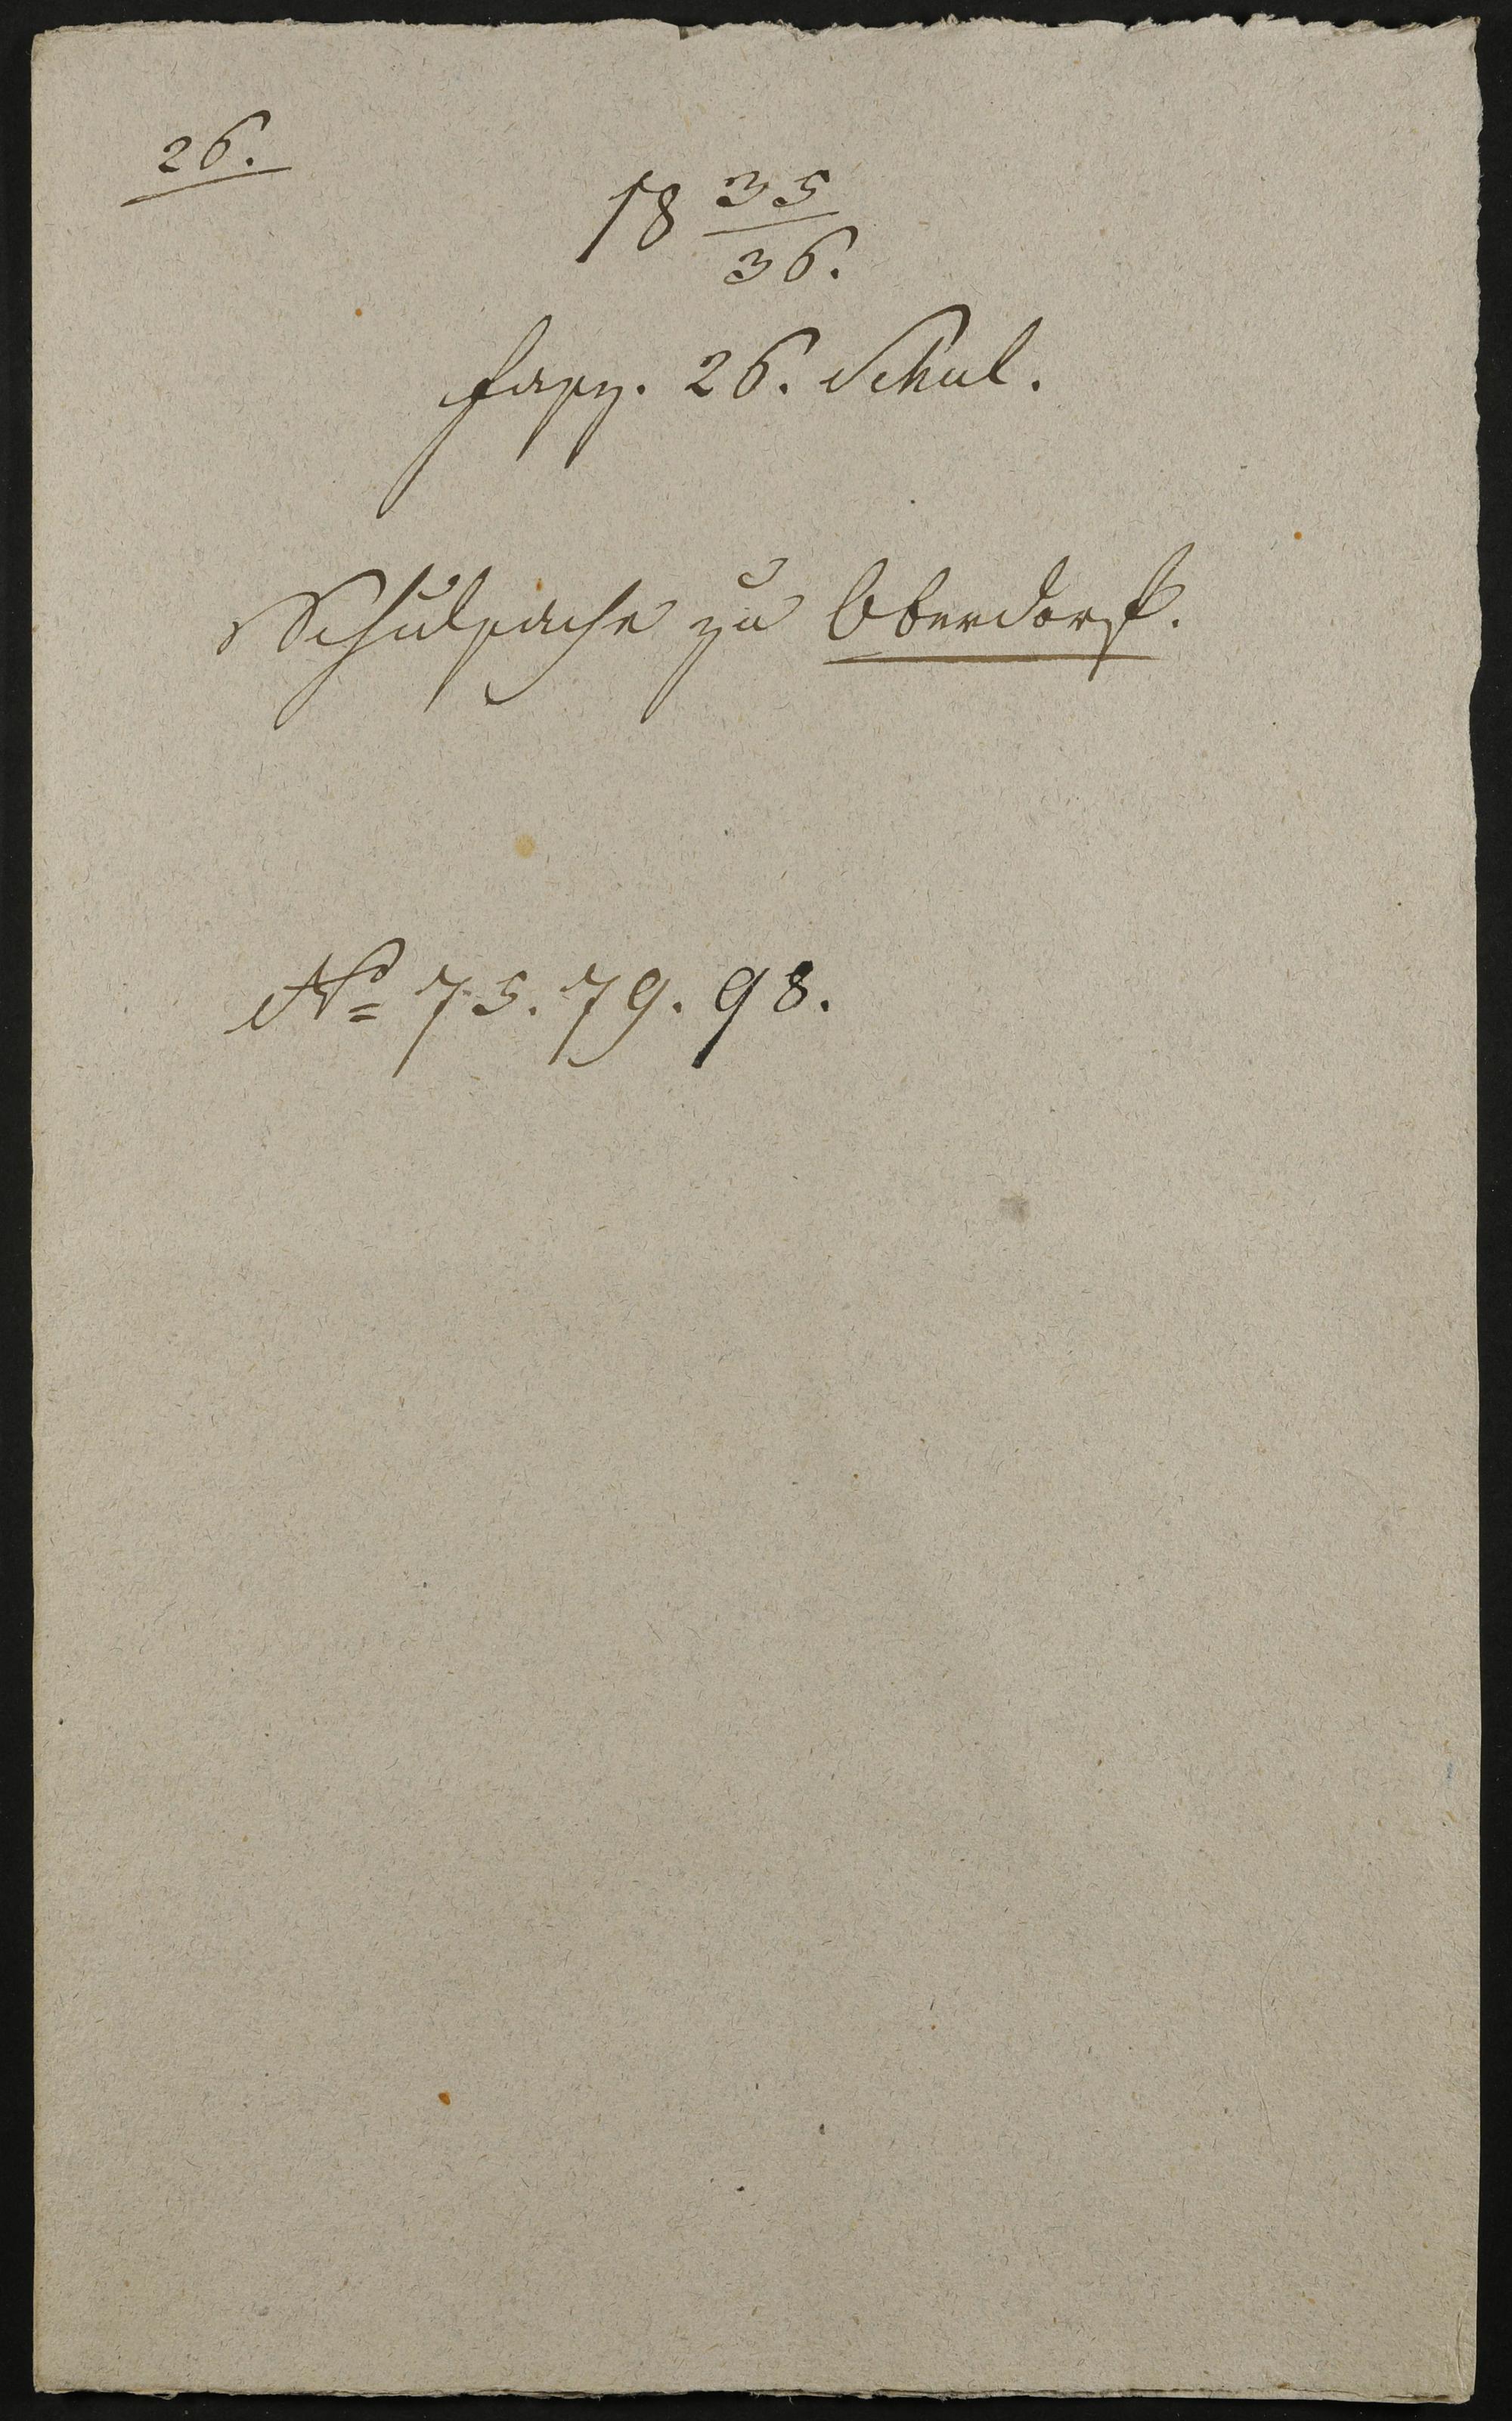 26.
18 35/36.
fasz. 26. Schul.
Schulsache zu Oberdorf.
No 75. 79. 98.